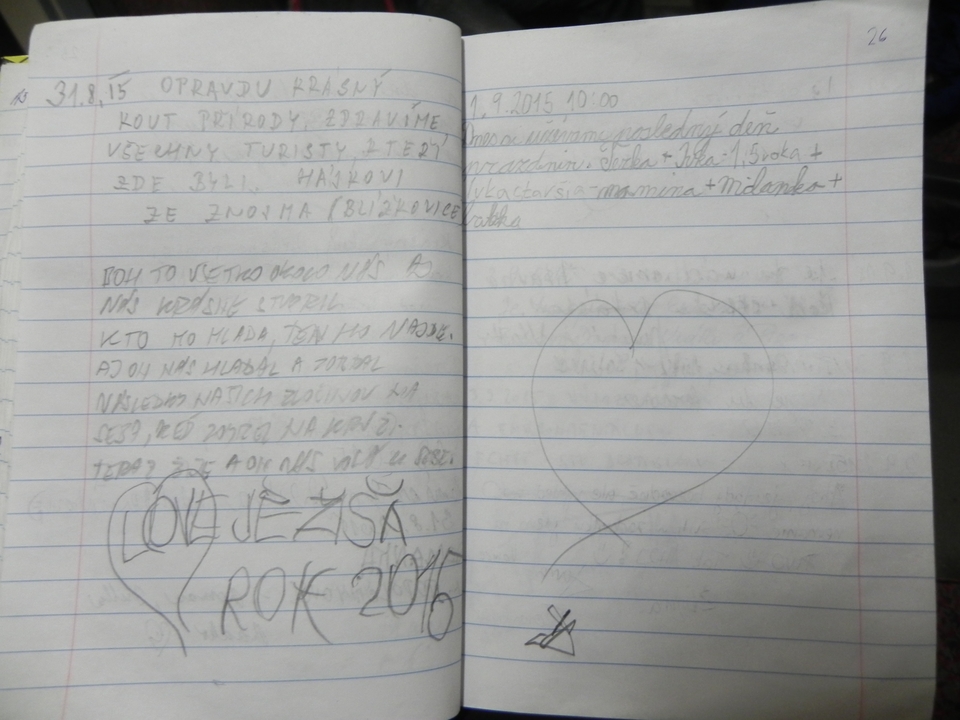 31.8.15 OPRAVDU KRÁSNÝ
KOUT PŘÍRODY, ZDRAVÍME
VŠECHNY TURISTY, KTEŘÍ
ZDE BYLI. HÁJKOVI
ZE ZNOJMA (BLÍŽKOVICE
BOH TO VŠETKO OKOLO NÁS AJ
NÁS KRÁSNE STVORIL
KTO HO HĽADÁ, TEN HO NÁJDE.
AJ ON NÁS HĽADAL A
NAŠICH ZLOČINOV NA
SEBA, KEĎ ZOMREL NA KRÍŽI.
TERAZ ŽIJE A ON NÁS K SEBE.
LOVE JEŽIŠA
ROK 2015
26
1.9.2015 10:00
užívame posledný deň
prázdnin. + Ivka - 1,5 roka +
staršia - mamina + Milanko +